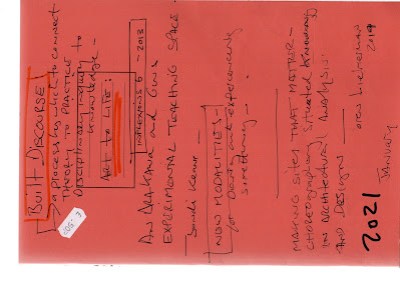 BUILT DISCOURSE
a process by which to connect
THEORY TO PRACTICE
DISCIPLINARY INQUIRY to
knowledge -
ART TO LIFE:
INFLEXIONS 6 - 2013
AN ARAKAWA and Gins
EXPERIMENTAL TEACHING SPACE
Jondi Keane -
NOW MODALITIES -
for and experiencing
something -
MAKING SITES THAT MATTER -
CHOREOGRAPHING Situated Knowing
IN ARCHITECTURAL ANALYSIS
AND DESIGN -
oren Lieberman
2019
JANUARY
2021